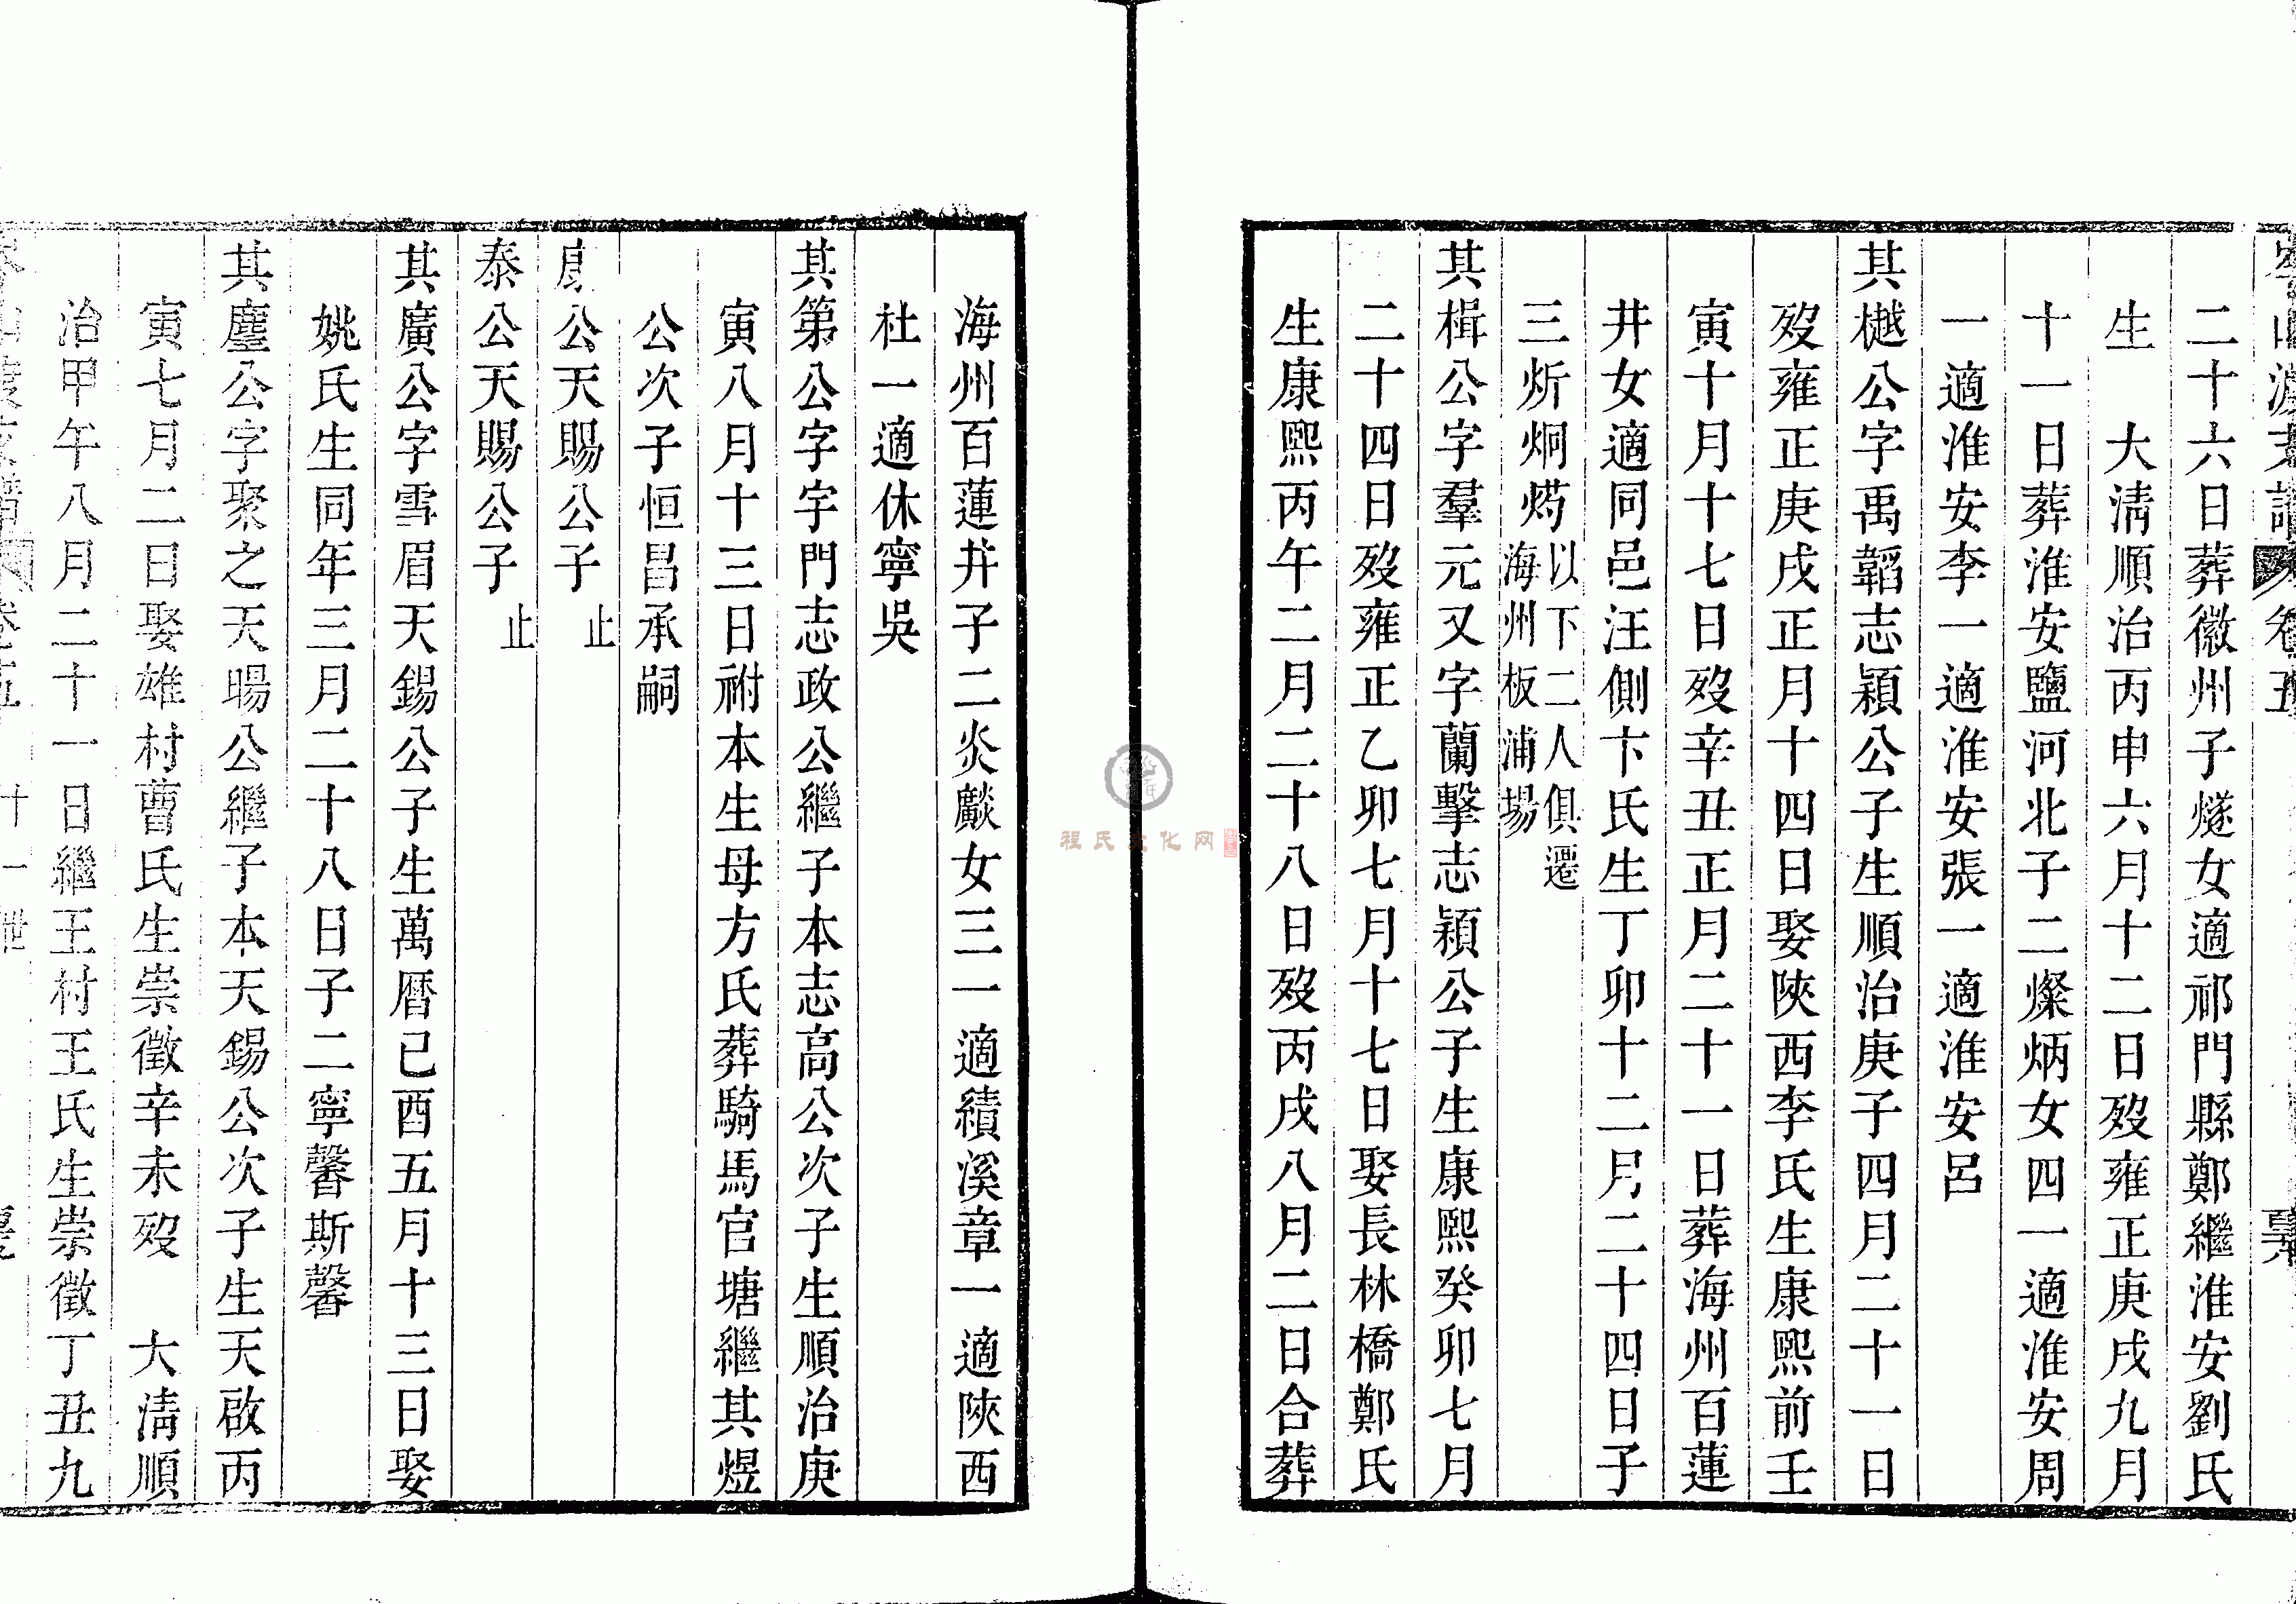 二十六日葬徽州子燧女適祁門縣鄭繼淮安劉氏
生　大清順治丙申六月十二日歿雍正庚戌九月
十一日葬淮安鹽河北子二燦炳女四一適淮安周
一適淮安李一適淮安張一適淮安呂
其樾公字禹韜志穎公子生順治庚子四月二十一日
歿雍正庚戌正月十四日娶陝西李氏生康熙前壬
寅十月十七日歿辛丑正月二十一日葬海州百蓮
井女適同邑汪側卞氏生丁卯十二月二十四日子
三炘炯焛以下二人俱遷海州板浦場
其楫公字羣元又字蘭擊志穎公子生康熙癸卯七月
二十四日歿雍正乙卯七月十七日娶長林橋鄭氏
生康熙丙午二月二十八日歿丙戌八月二日合葬
海州百蓮井子二炎歘女三一適績溪章一適陝西
杜一適休寧吳
其第公字宇門志政公繼子本志高公次子生順治庚
寅八月十三日祔本生母方氏葬騎馬官塘繼其煜
公次子恒昌承嗣
公天賜公子止
泰公天賜公子止
其廣公字雪眉天錫公子生萬曆己酉五月十三日娶
姚氏生同年三月二十八日子二寧馨斯馨
其塵公字聚之天暘公繼子本天錫公次子生天啟丙
寅七月二日娶雄村曹氏生崇徵辛未歿　大清順
治甲午八月二十一日繼王村王氏生崇徵丁丑九
程氏文化网